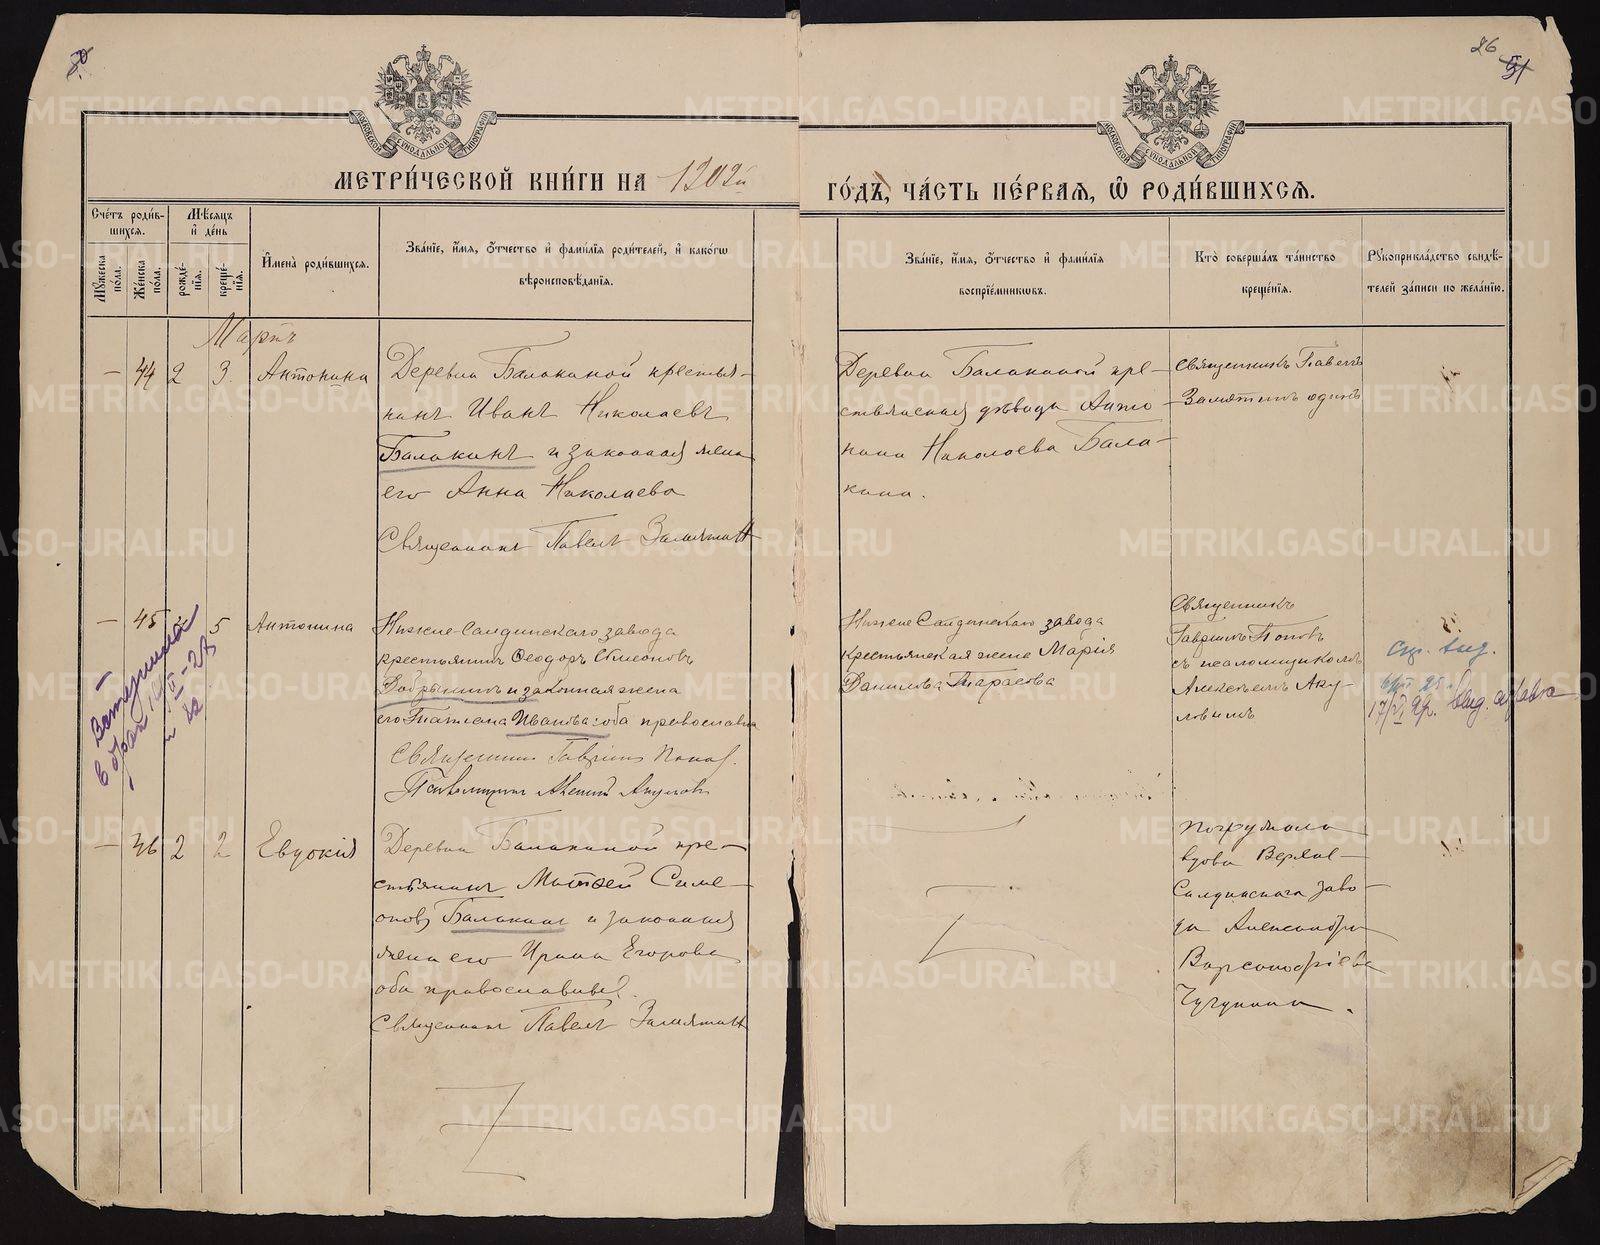 26
31
МОСКОВСКОЙ СУНОДАЛЬНОЙ ТИПОГРАФІИ
МОСКОВСКОЙ СУНОДАЛЬНОЙ ТИПОГРАФІИ
МЕТРИ́ЧЕСКОЙ КНИ́ГИ НА
ГО́ДЪ, ЧА́СТЬ ПЕ́РВАѦ, Ѽ РОДИ́ВШИХСѦ.
Сче́тъ роди́в-
шихсѧ.
Мꙋ́жеска по́ла.
Же́нска по́ла.
Мѣ́сѧцъ
и҆ де́нь
рожде́-
нїѧ.
креще́-
нїѧ.
И҆мена̀ роди́вшихсѧ.
Зва́нїе, и҆́мѧ, ѻ҆́тчество и҆ фами́лїѧ роди́телей, и҆ како́гѡ
вѣроисповѣ́данїѧ.
Зва́нїе, и҆́мѧ, ѻ҆́тчество и҆ фами́лїѧ
воспрїе́мникѡвъ.
Кто̀ соверша́лъ та́инство
креще́нїѧ.
Рꙋкоприкла́дство свидѣ́-
телей за́писи по жела́нїю.
Мартъ
— 44 2 3. Антонина
Деревни Балакиной крестья-
нинъ Иванъ Николаевъ
Балакинъ и законная жена
его Анна Николаева
Священникъ Павелъ Замятинъ
Деревни Балакиной кре-
стьянская дѣвица Анто
нина Николаева Бала-
кина.
Священникъ Павелъ
Замятинъ одинъ
— 45 2 5 Антонина
Нижне-Салдинскаго завода
крестьянинъ Ѳеодоръ Симеоновъ
Добрынинъ и законная жена
его Татіана Иванова: оба православна
Священникъ Гавріилъ Поповъ.
Псаломщикъ Алексій Акуловъ
Нижне Салдинскаго завода
крестьянская жена Марія
Данилова Тарасова
Священникъ
Гавріилъ Поповъ
съ псаломщикомъ
Алексѣемъ Аку-
ловымъ
Вступила
в брак
17/VI
выд. справка
— 46 2 2 Евдокія
Деревни Балакиной кре-
стьянинъ Матѳей Симе-
оновъ Балакинъ и законная
жена его Ирина Егорова
оба православные.
Священникъ Павелъ Замятинъ
Погружала
вдова Верхне-
Салдинскаго заво-
да Александра
Варсонофіева
Чугунина.
METRIKI.GASO-URAL.RU